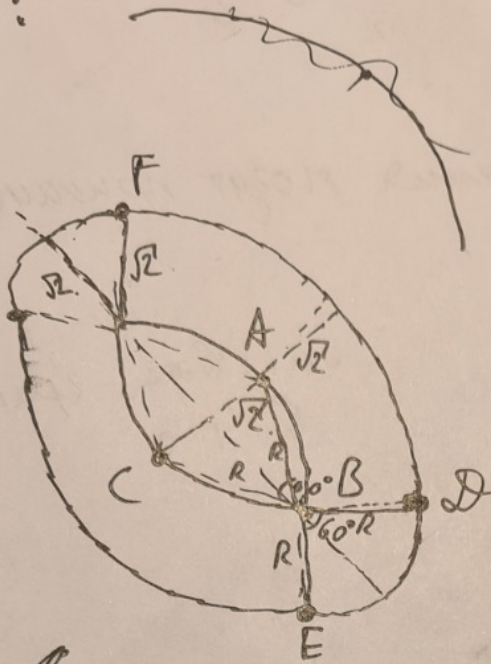 F
√2
√2
A
√2
√2
R
C
R
60° B
D
60° R
R
E